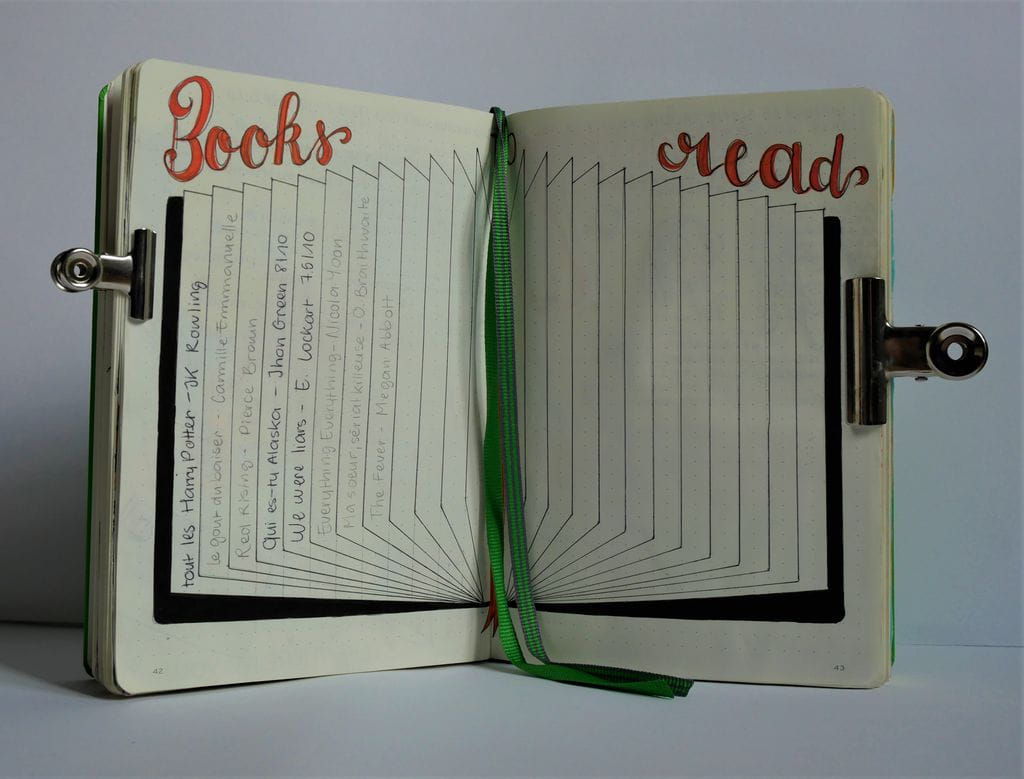 Books
read
tout les Harry Potter - JK Rowling
le gout du baiser - Cammille Emmmanuelle
Red Rising - Pierce Brown
Qui es-tu Alaska - Jhon Green 8/10
We were liars - E. Lockart 7.5/10
Everything Everything - Nicola Yoon
Ma soeur, sérial killeuse - O. Braithwaite
The Fever - Megan Abbott
42
43